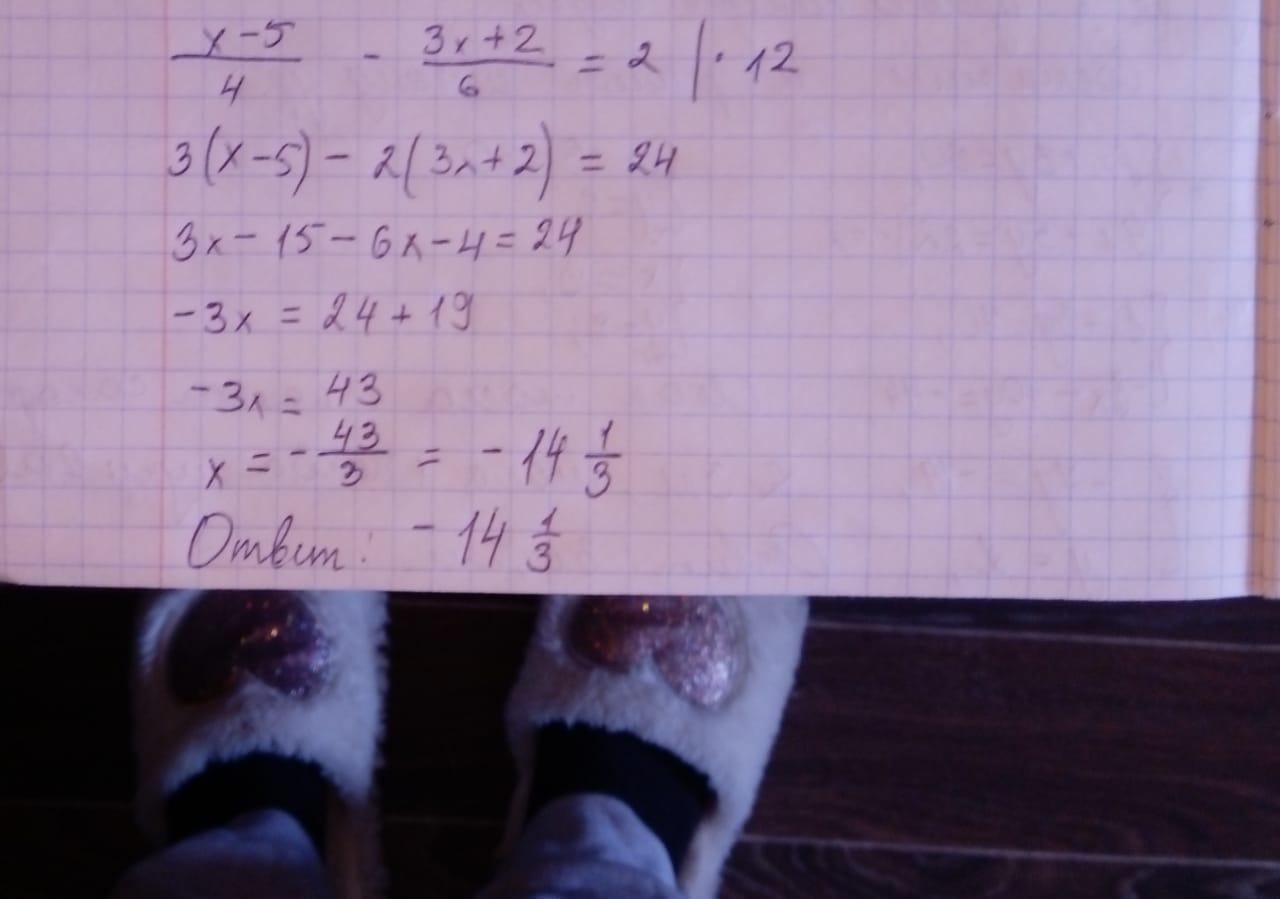 (x-5)/4 - (3x+2)/6 = 2 |· 12
3(x-5) - 2(3x+2) = 24
3x - 15 - 6x - 4 = 24
-3x = 24 + 19
-3x = 43
x = - 43/3 = - 14 1/3
Ответ: - 14 1/3